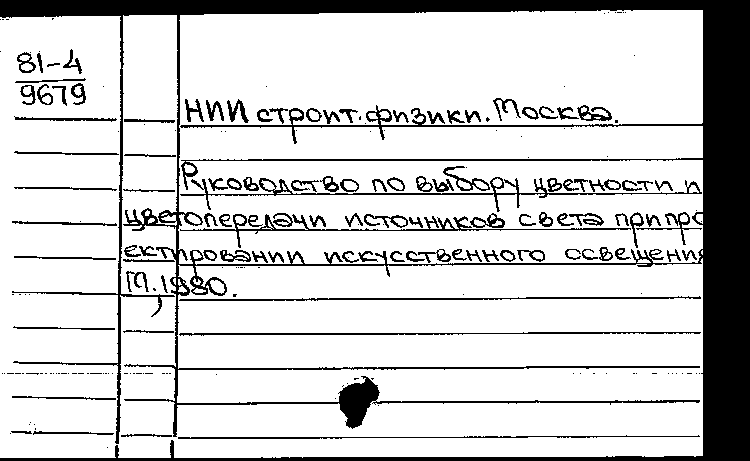 81-4
9679
НИИ строит.физики. Москва.
Руководство по выбору цветности и
цветопередачи источников света при про
ектировании искусственного освещения
М., 1980.